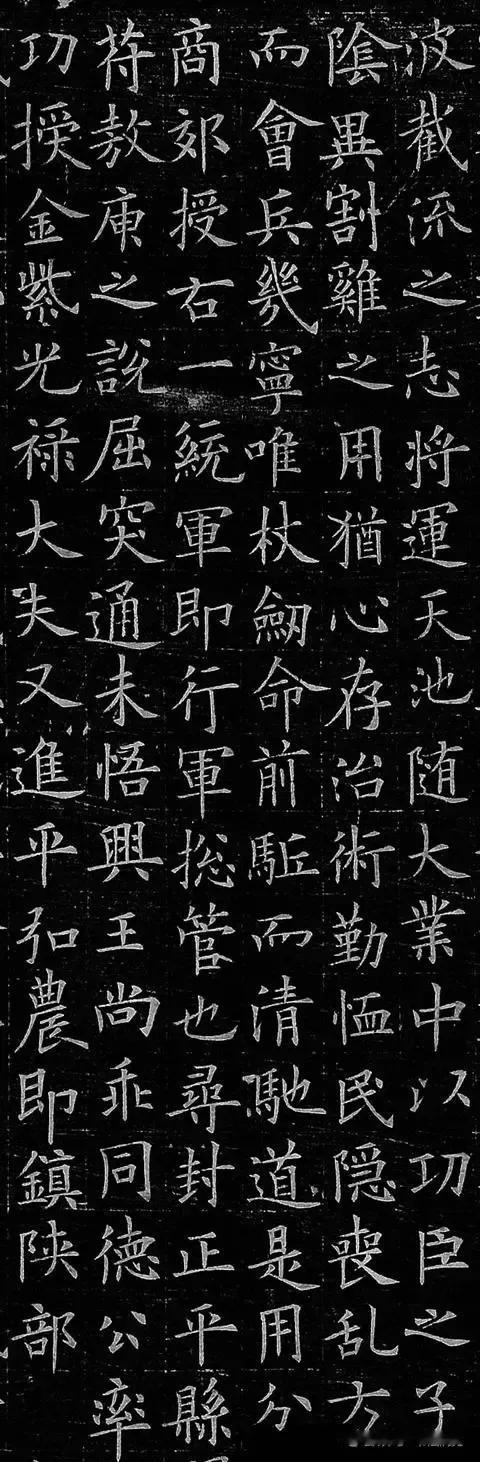 波截流之志将運天池随大業中以功臣之子
陰異割雞之用猶心存治術勤恤民隠喪乱方
而會兵幾寧唯杖劒命前駈而清馳道是用分
商郊授右一統軍即行軍捴管也尋封正平縣
苻敖庾之說屈突通未悟興王尚乖同德公率
功授金紫光禄大夫又進平弘農即鎮陜部